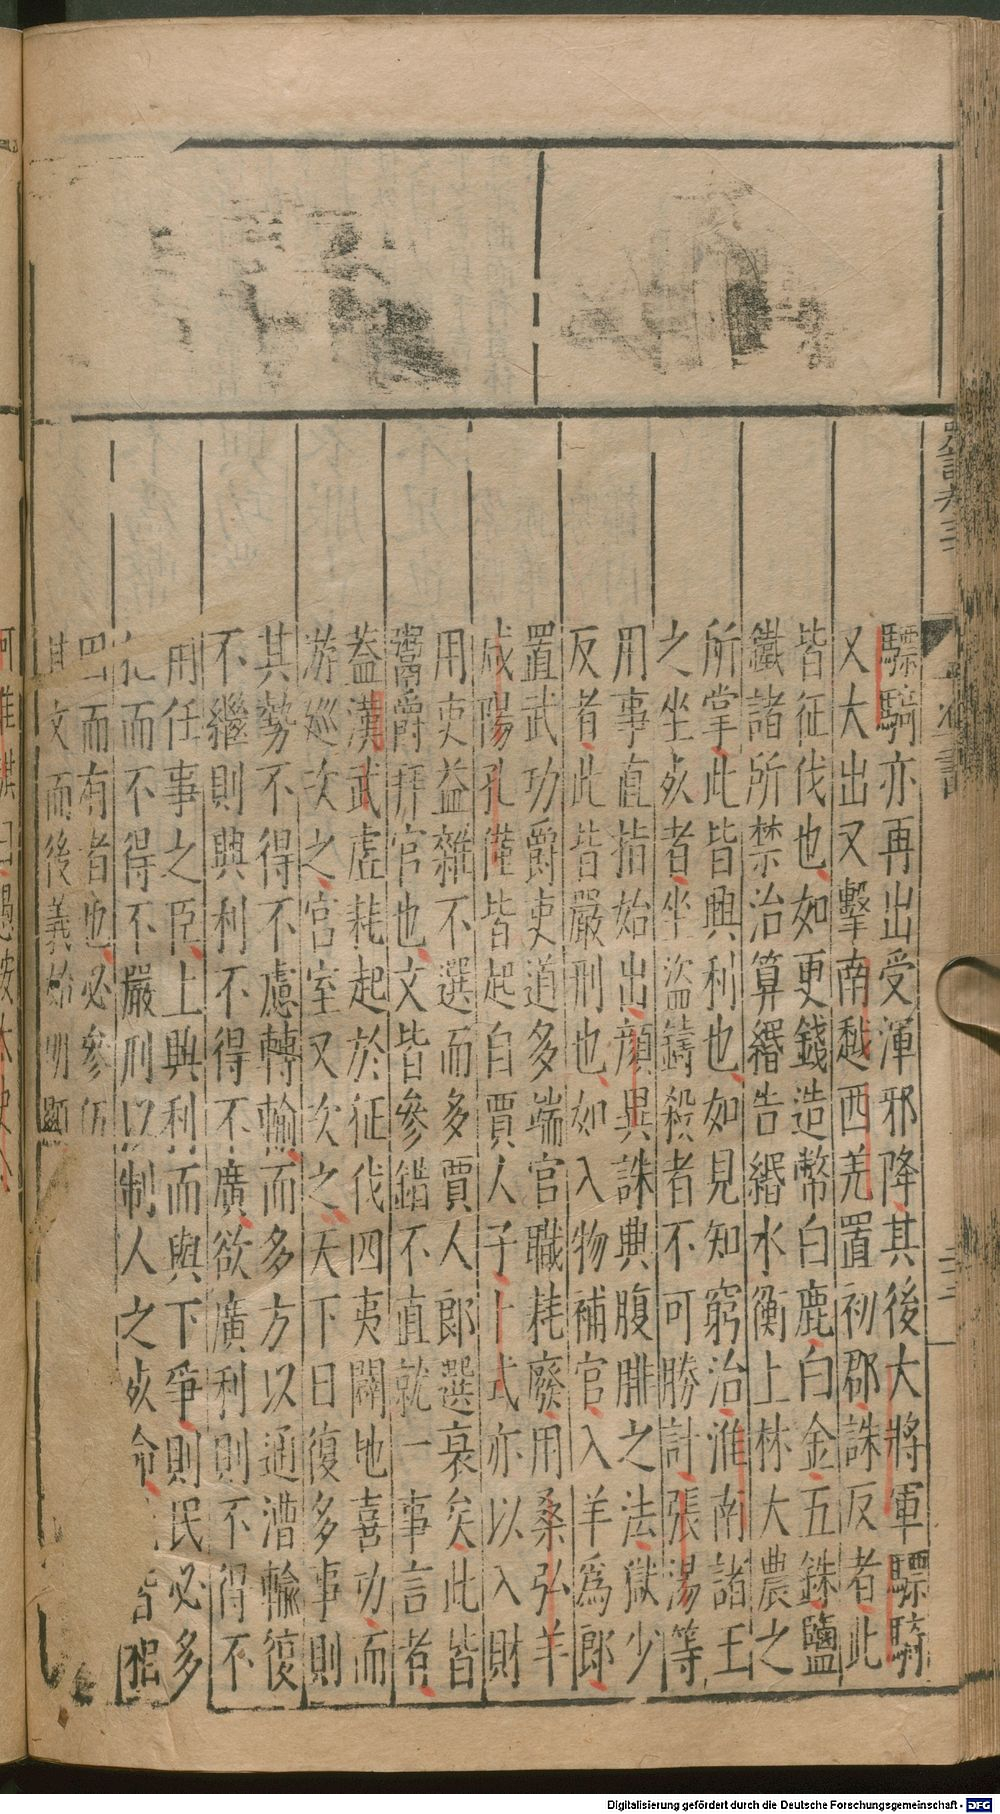 驃騎亦再出受渾邪降其後大將軍驃騎
又大出又擊南越西羌置初郡誅反者此
皆征伐也如更錢造幣白鹿白金五銖鹽
鐵諸所禁治算緡告緡水衡上林大農之
所掌此皆興利也如見知窮治淮南諸王
之坐死者坐盜鑄殺者不可勝計張湯等
用事直指始出顏異誅典腹腓之法獄少
反者此皆嚴刑也如入物補官入羊爲郎
置武功爵吏道多端官職耗廢用桑弘羊
咸陽孔僅皆起自賈人子卜式亦以入財
用吏益雜不選而多賈人郎選衰矣此皆
鬻爵拜官也文皆參錯不直就一事言者
蓋漢武虛耗起於征伐四夷闢地喜功而
游巡次之宮室又次之天下日復多事則
其勢不得不慮轉輸而多方以通漕輸復
不繼則興利不得不廣欲廣利則不得不
用任事之臣上興利而與下爭則民必多
而不得不嚴刑以制人之死命 皆相
而有者也必參伍
其文而後義始明顯
Digitalisierung gefördert durch die Deutsche Forschungsgemeinschaft - DFG